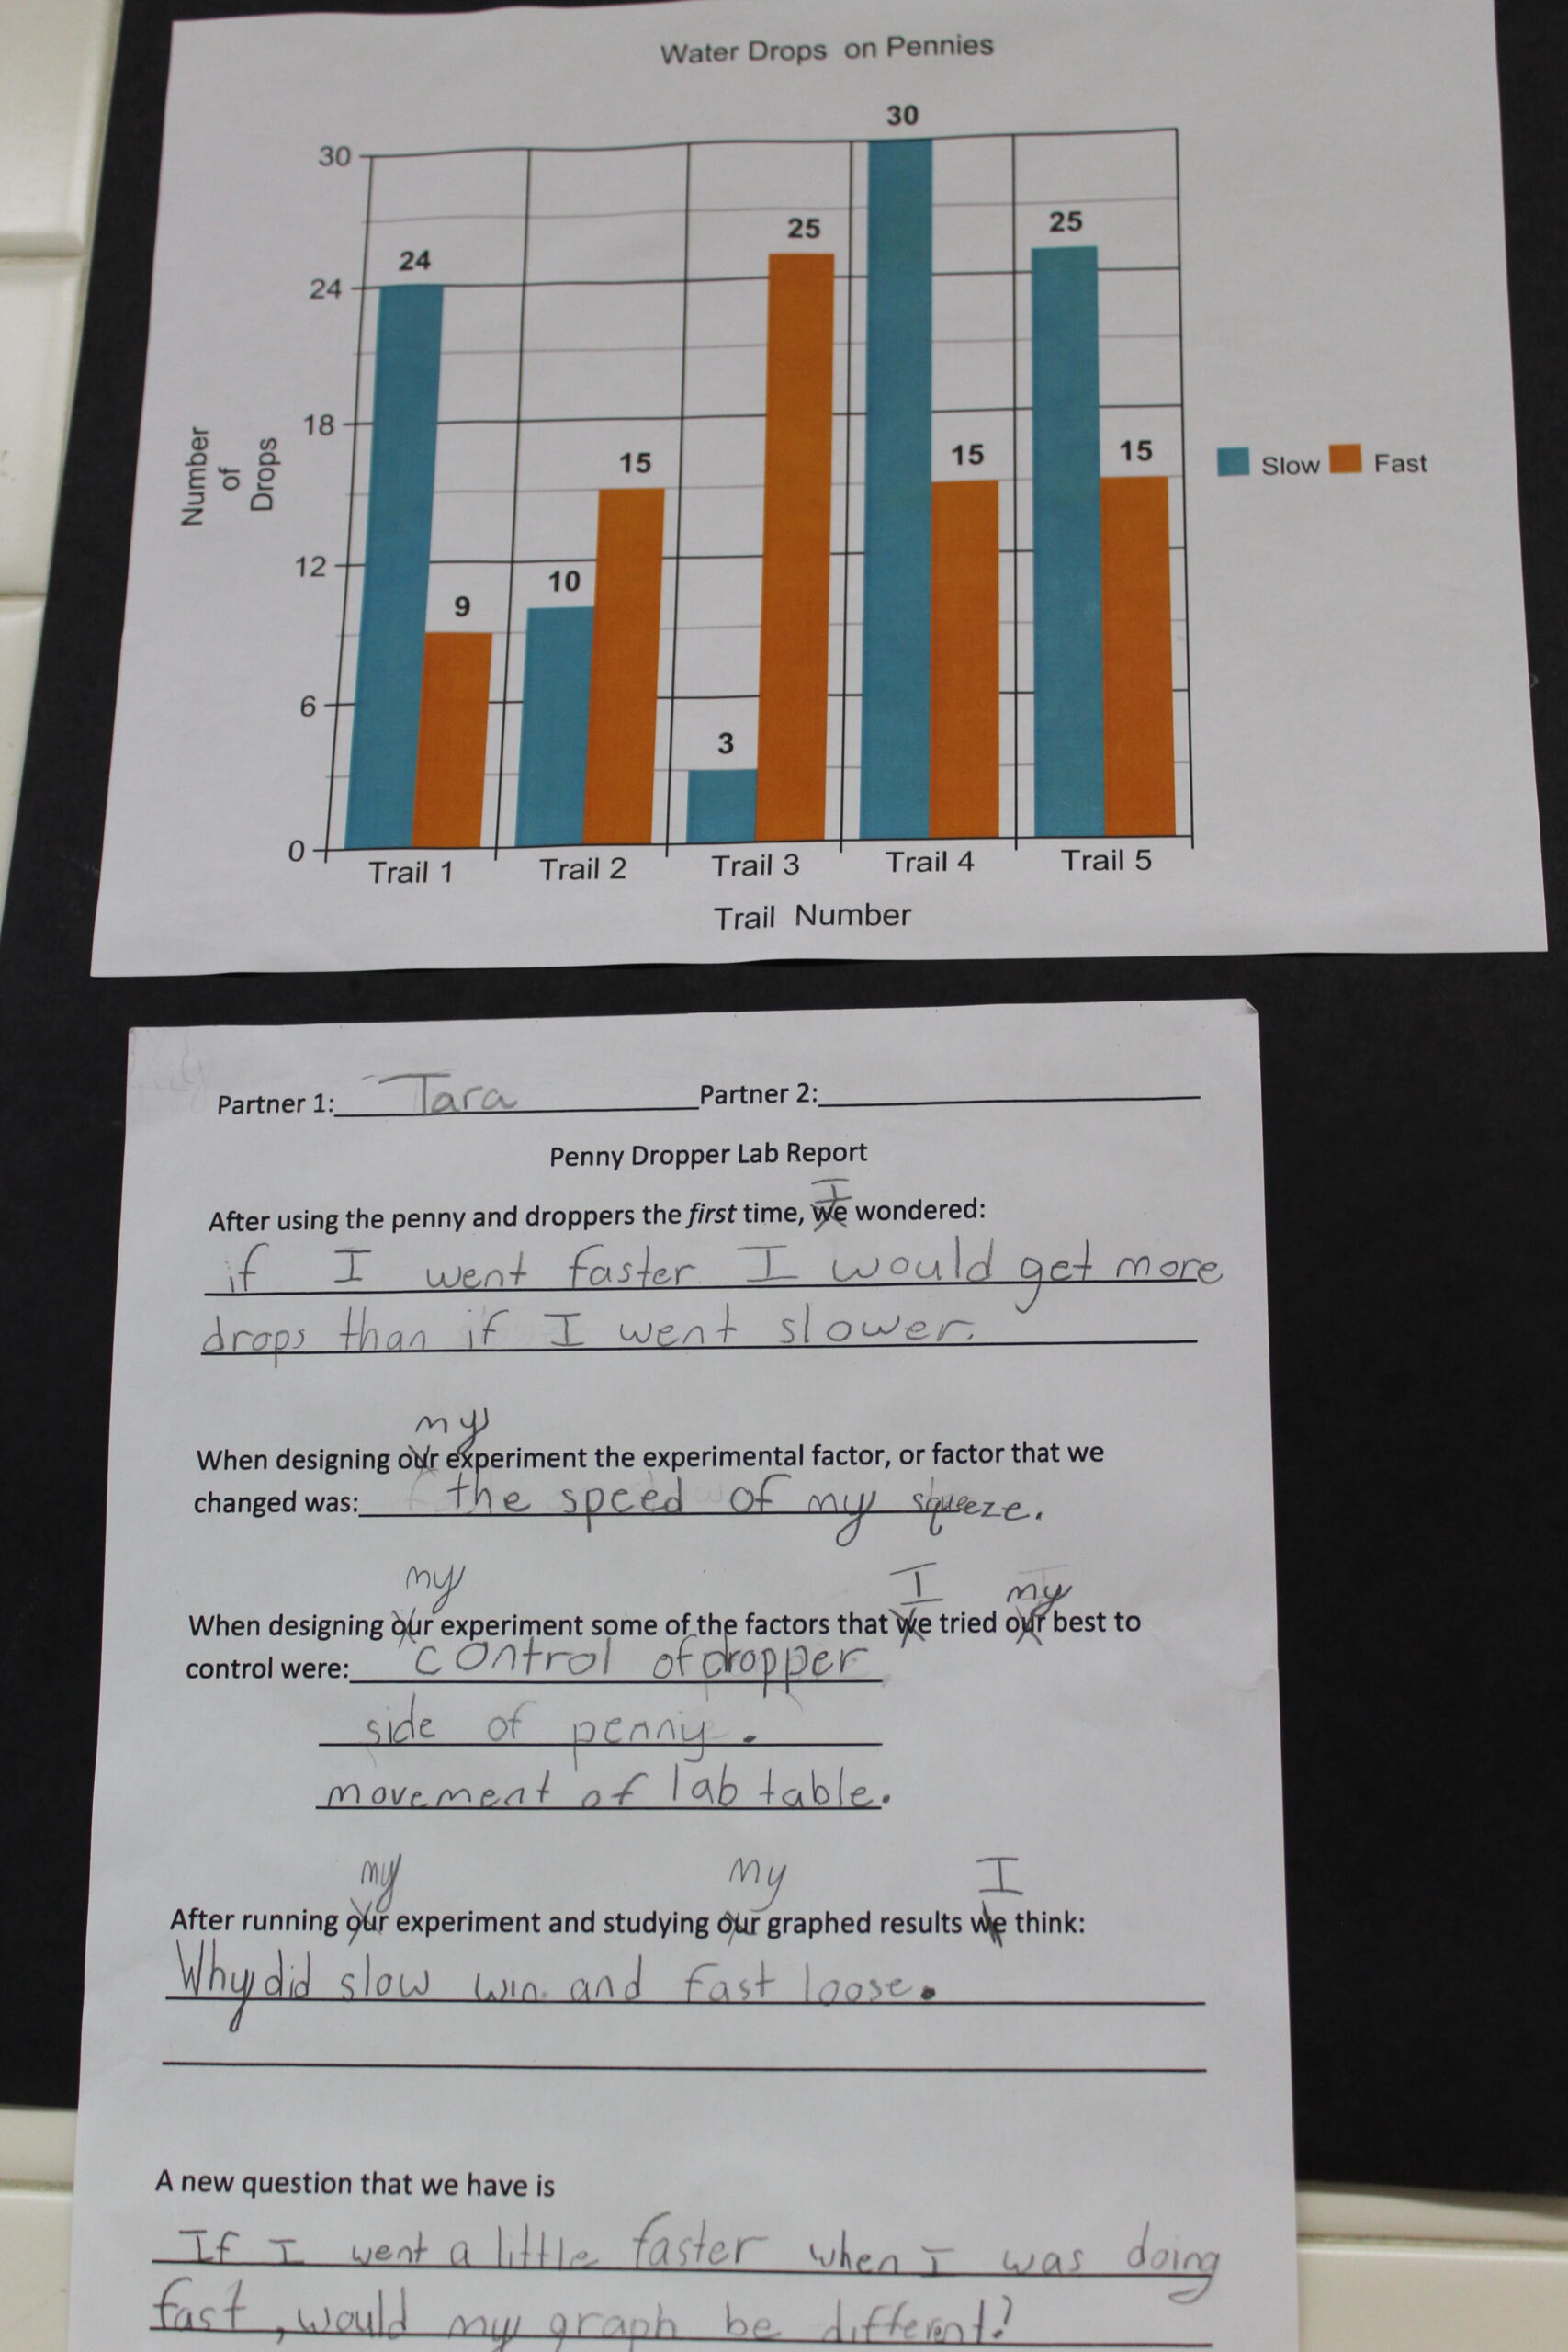 Water Drops on Pennies
30
30
25
25
24
24
18
15
15
15
12
10
9
6
3
0
Number
of
Drops
Slow Fast
Trail 1 Trail 2 Trail 3 Trail 4 Trail 5
Trail Number
Partner 1: Tara Partner 2:
Penny Dropper Lab Report
I
After using the penny and droppers the first time, we wondered:
if I went faster I would get more
drops than if I went slower.
my
When designing our experiment the experimental factor, or factor that we
changed was: the speed of my squeeze.
my I my
When designing our experiment some of the factors that we tried our best to
control were: control of dropper
side of penny.
movement of lab table.
my my I
After running our experiment and studying our graphed results we think:
Why did slow win and fast loose.
A new question that we have is
If I went a little faster when I was doing
fast, would my graph be different?